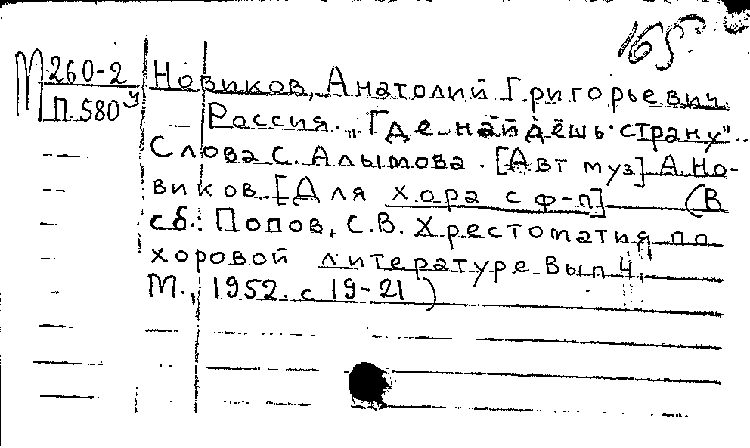 165
М 260-2
П.580 у
Новиков, Анатолий Григорьевич
Россия. „Где найдёшь страну"..
Слова С. Алымова. [Авт муз] А.Но-
виков. [Для хора с ф-п] (В
сб.: Попов, С.В. Хрестоматия по
хоровой литературе. Вып 4.
М., 1952. с 19-21)